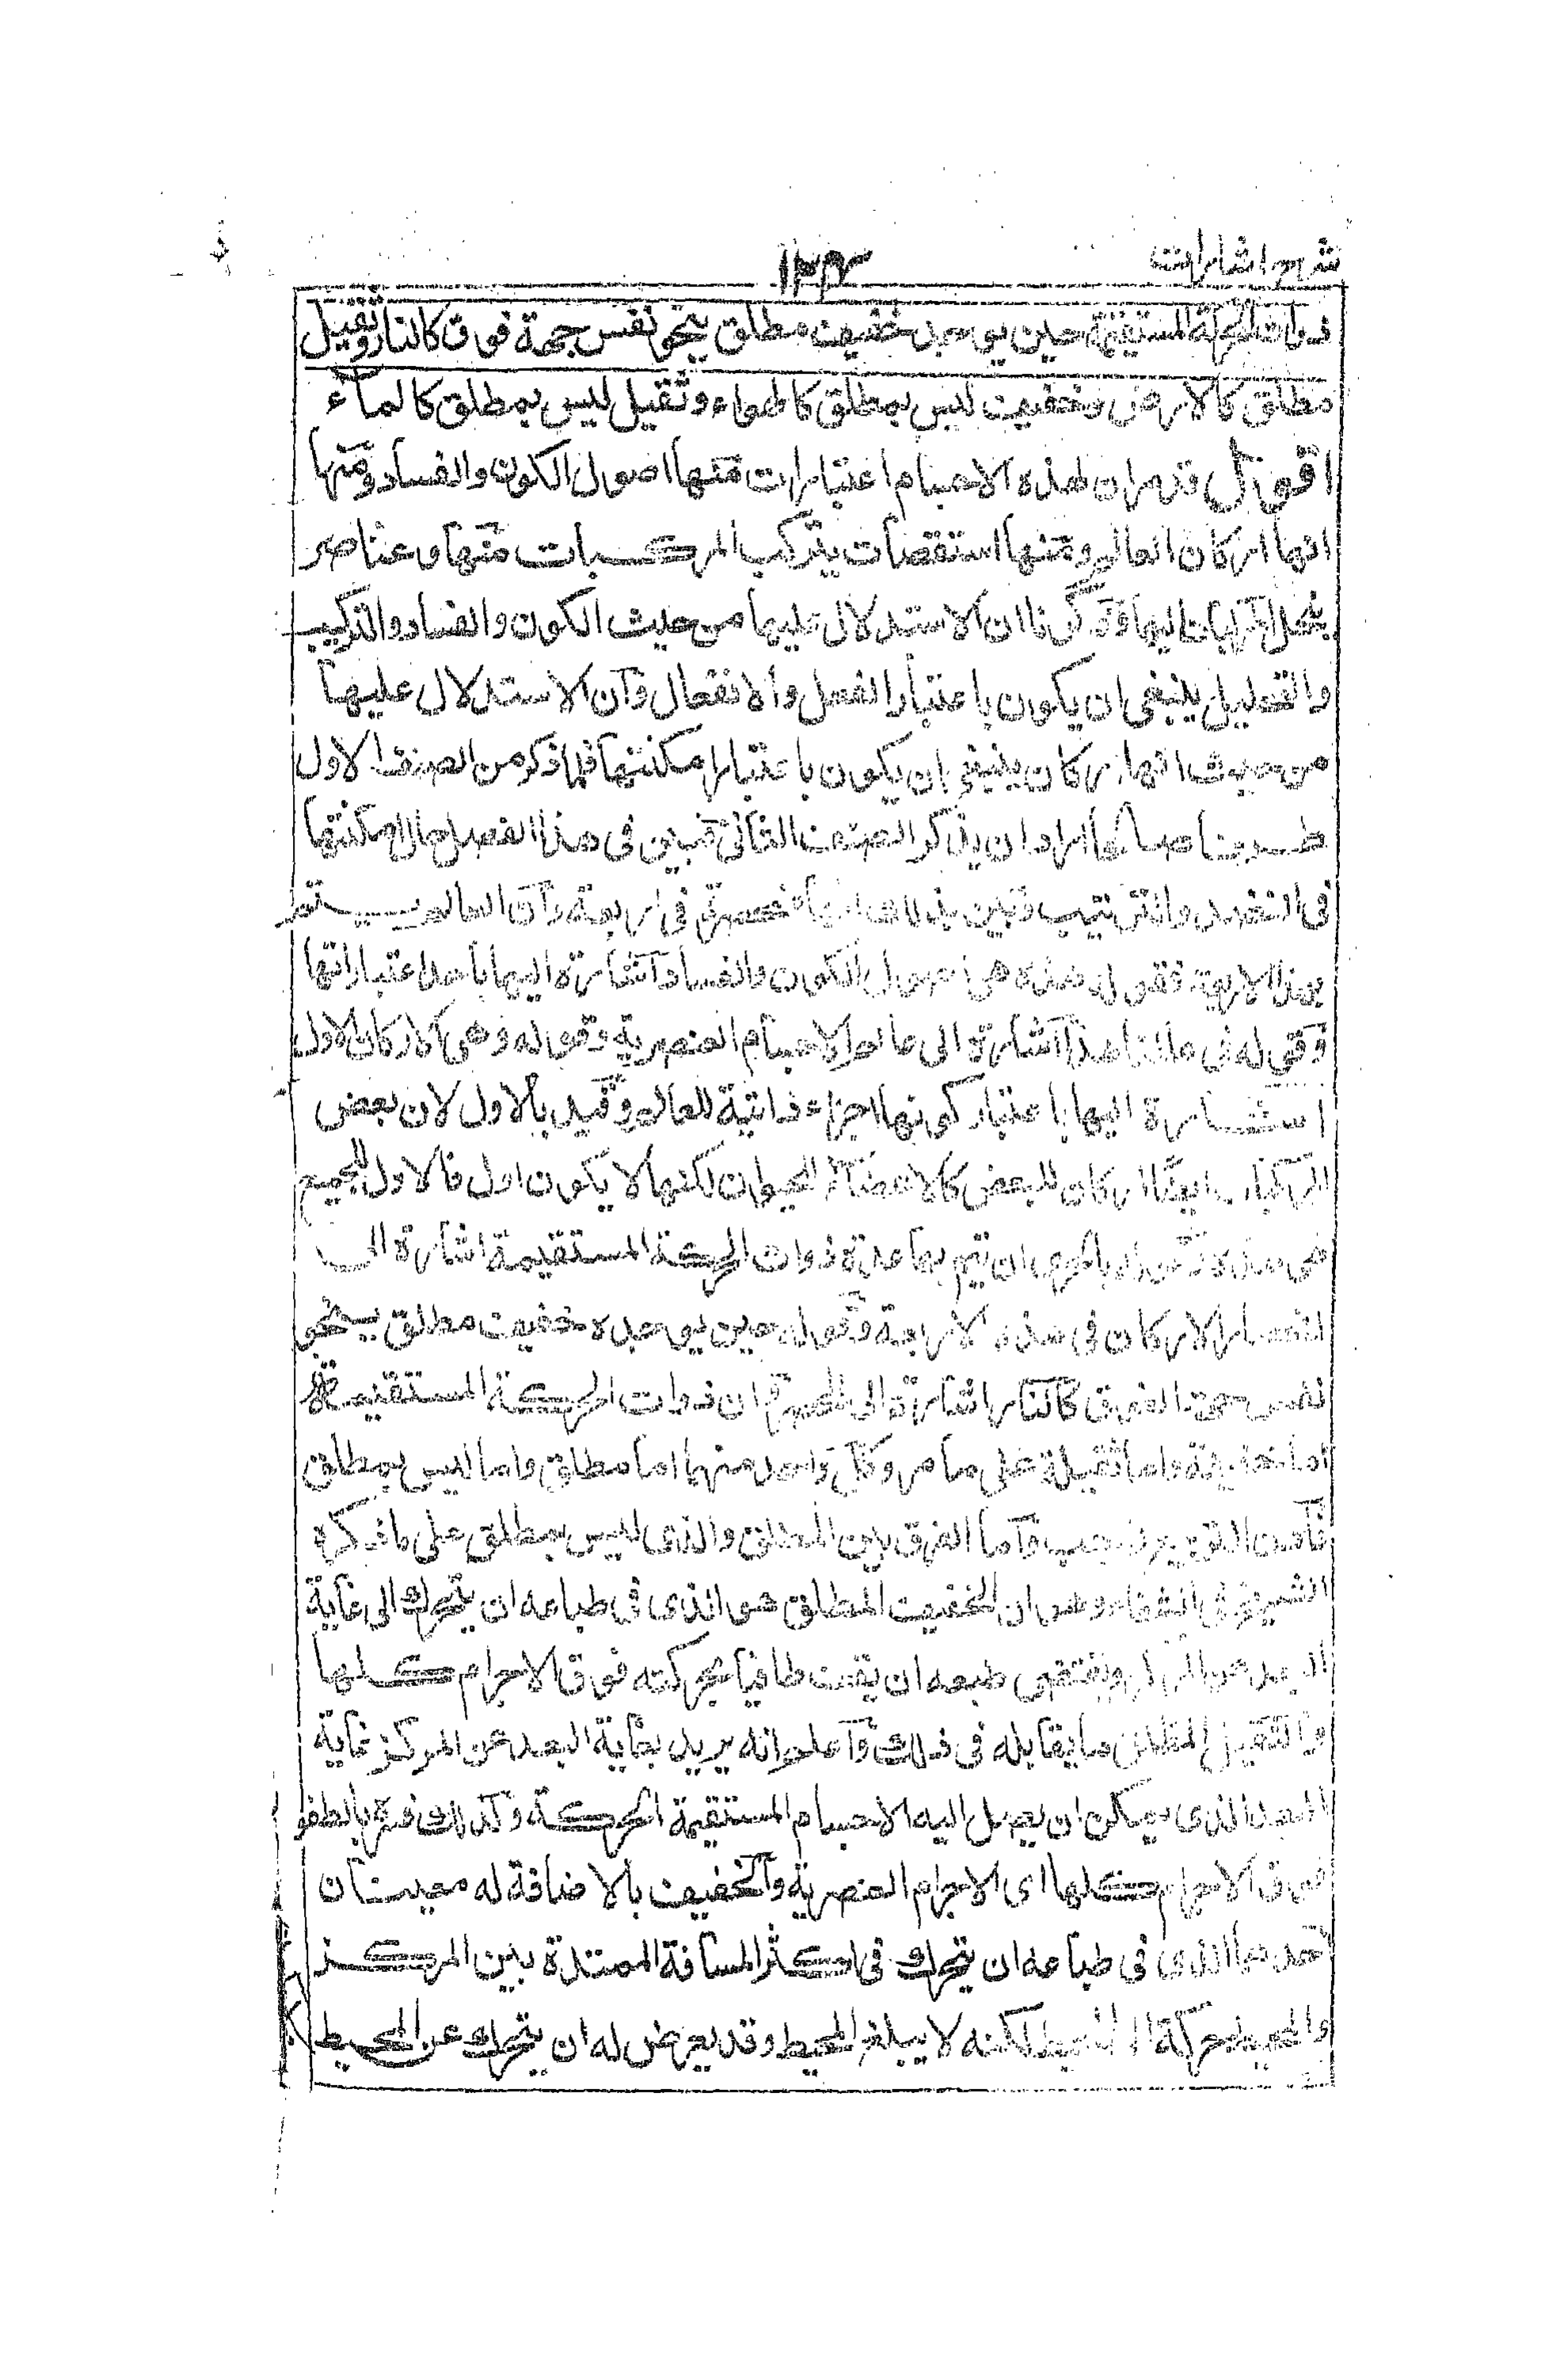 شرح اشارات
١٣٤
ذوات الحركة المستقيمة حين يوجد خفيف مطلق ينحو نفس جهة فوق كالنار وثقيل
مطلق كالارض وخفيف ليس بمطلق كالهواء وثقيل ليس بمطلق كالماء
اقول قد مر ان لهذه الاجسام اعتبارات منها اصول الكون والفساد ومنها
انها اركان العالم ومنها استقصات يتركب المركبات منها وعناصر
ينحل المركبات اليها وذكرنا ان الاستدلال عليها من حيث الكون والفساد والتركيب
والتحليل ينبغى ان يكون باعتبار الفعل والانفعال وان الاستدلال عليها
من حيث انها اركان ينبغى ان يكون باعتبار امكنتها فلما ذكر من الصنف الاول
اراد ان يذكر الصنف الثانى فبين فى هذا الفصل حال امكنتها
فى التفرد والترتيب وبين بذلك انها منحصرة فى اربعة وان العالم
بهذا الاربعة فقوله هذه هى اصول الكون والفساد اشارة اليها باحد اعتباراتها
وقوله فى عالمنا هذا اشارة الى عالم الاجسام العنصرية وقوله وهى الاركان الاول
اشارة اليها باعتبار كونها اجزاء ذاتية للعالم وقيد بالاول لان بعض
المركبات ايضا اركان للبعض كالاعضاء للحيوان لكنها لا يكون اول فالاول للجميع
هى هذه وقوله بالحرى ان تتم بها عدة ذوات الحركة المستقيمة اشارة الى
انحصار الاركان فى هذه الاربعة وقوله حين يوجد خفيف مطلق ينحو
نفس جهة الفوق كالنار اشارة الى الحصر فان ذوات الحركة المستقيمة
اما خفيفة واما ثقيلة على ما مر وكل واحد منهما اما مطلق واما ليس بمطلق
واما الفرق بين المطلق والذى ليس بمطلق على ما ذكره
الشيخ فى الشفاء وهو ان الخفيف المطلق هو الذى فى طباعه ان يتحرك الى غاية
البعد عن المركز ويقتضى طبعه ان يقف طافيا بحركته فوق الاجرام كلها
والثقيل المطلق ما يقابله فى ذلك واعلم انه يريد بغاية البعد عن المركز غاية
البعد الذى يمكن ان يصل اليه الاجسام المستقيمة الحركة وكذلك فسره بالطفو
فوق الاجرام كلها اى الاجرام العنصرية والخفيف بالاضافة له معنيان
احدهما الذى فى طباعه ان يتحرك فى اكثر المسافة الممتدة بين المركز
والمحيط حركة الى المحيط لكنه لا يبلغ المحيط وقد يعرض له ان يتحرك عن المحيط